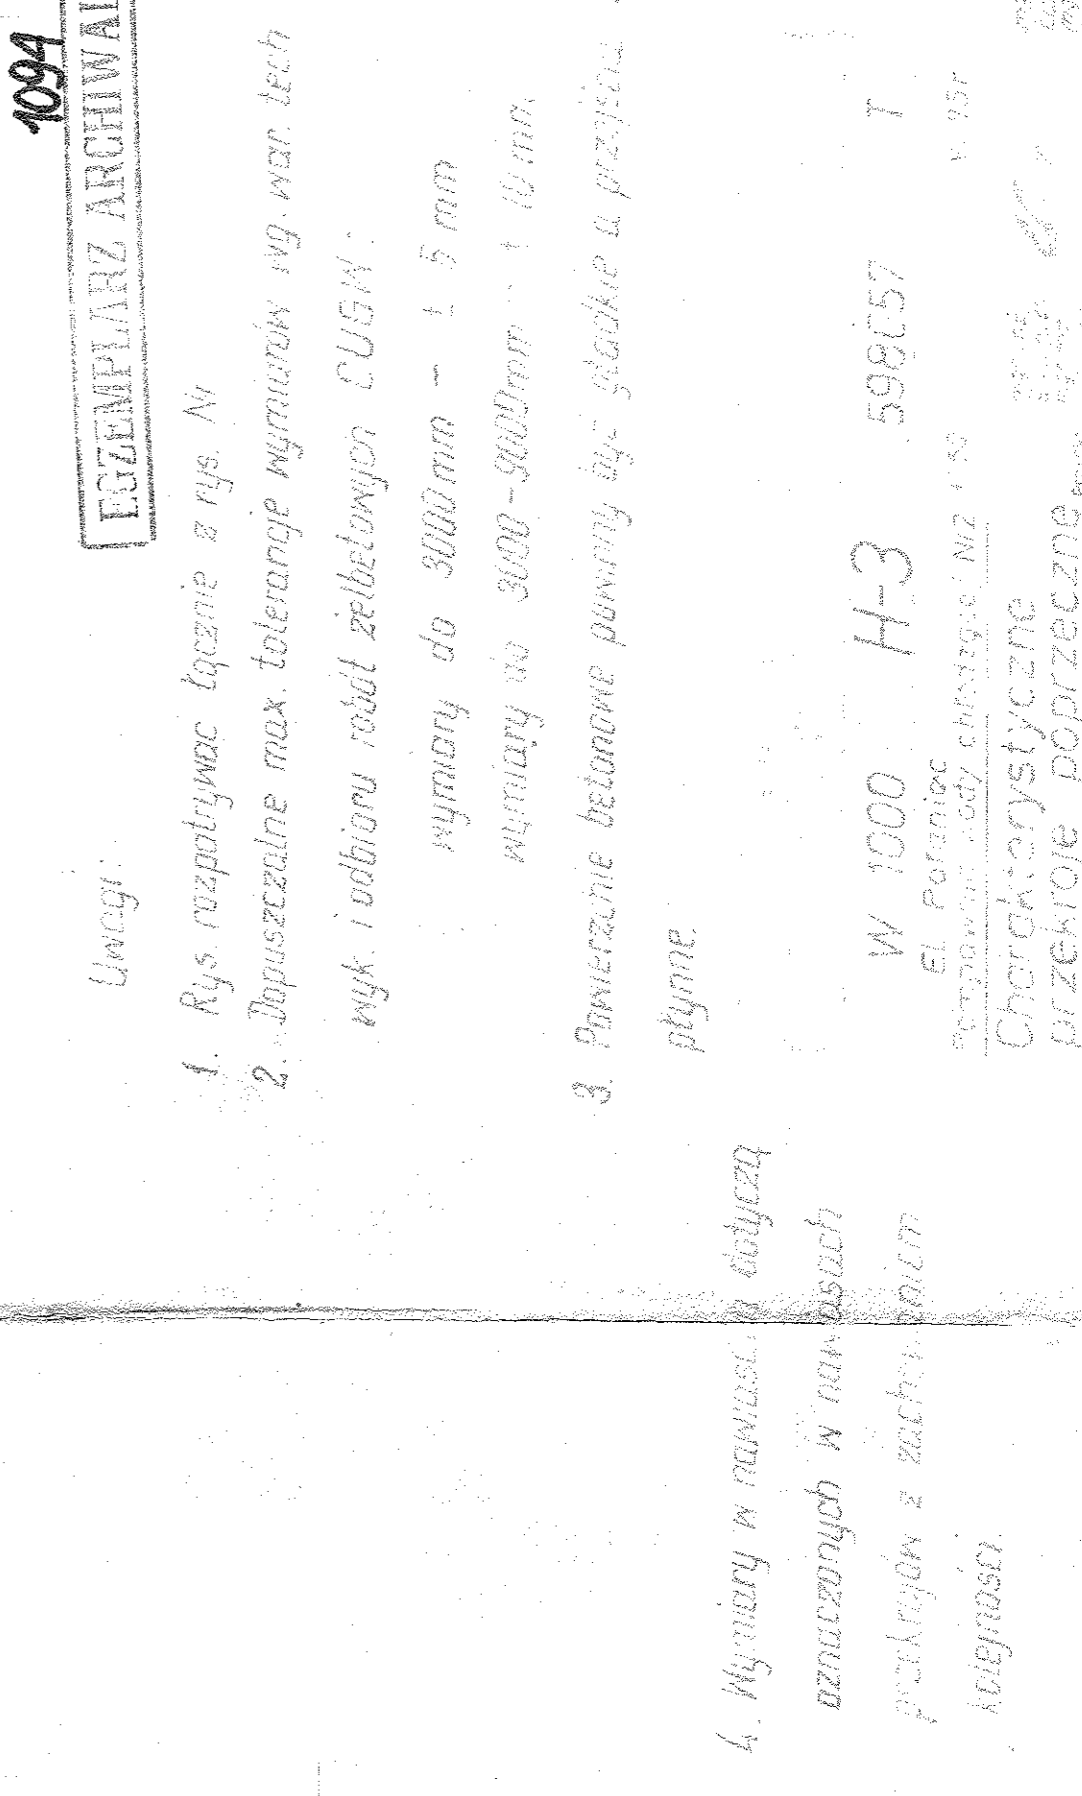 1094
EGZEMPLARZ ARCHIWAL
Uwagi:
1. Rys. rozpatrywac łącznie z rys. Nr
2. Dopuszczalne max. tolerancje wymiarów wg. war. tech
wyk. i odbioru robót żelbetowych CUGW:
wymiary do 3000 mm - ± 5 mm
wymiary do 3000-9000mm ± 10 mm.
3. Powierzchnie betonowe powinny być gładkie a przejścia
płynne.
4. Wymiary w nawiasach dotyczą
oznaczonych w nawiasach
przekrojów z zachowaniem
kolejności.
W 1000 H-3 598657 T
El. Połaniec
wody chłodzącej NR2
Charakterystyczne
przekroje poprzeczne